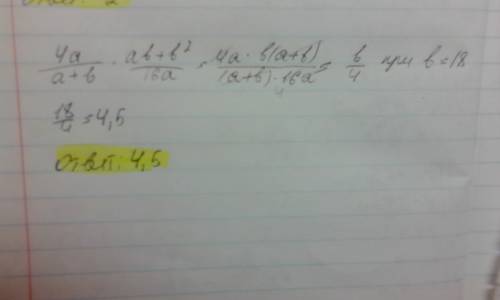 4a/(a+b) · (ab+b²)/16a = (4a·b(a+b))/((a+b)·16a) = b/4 при b=18
18/4 = 4,5
Ответ: 4,5